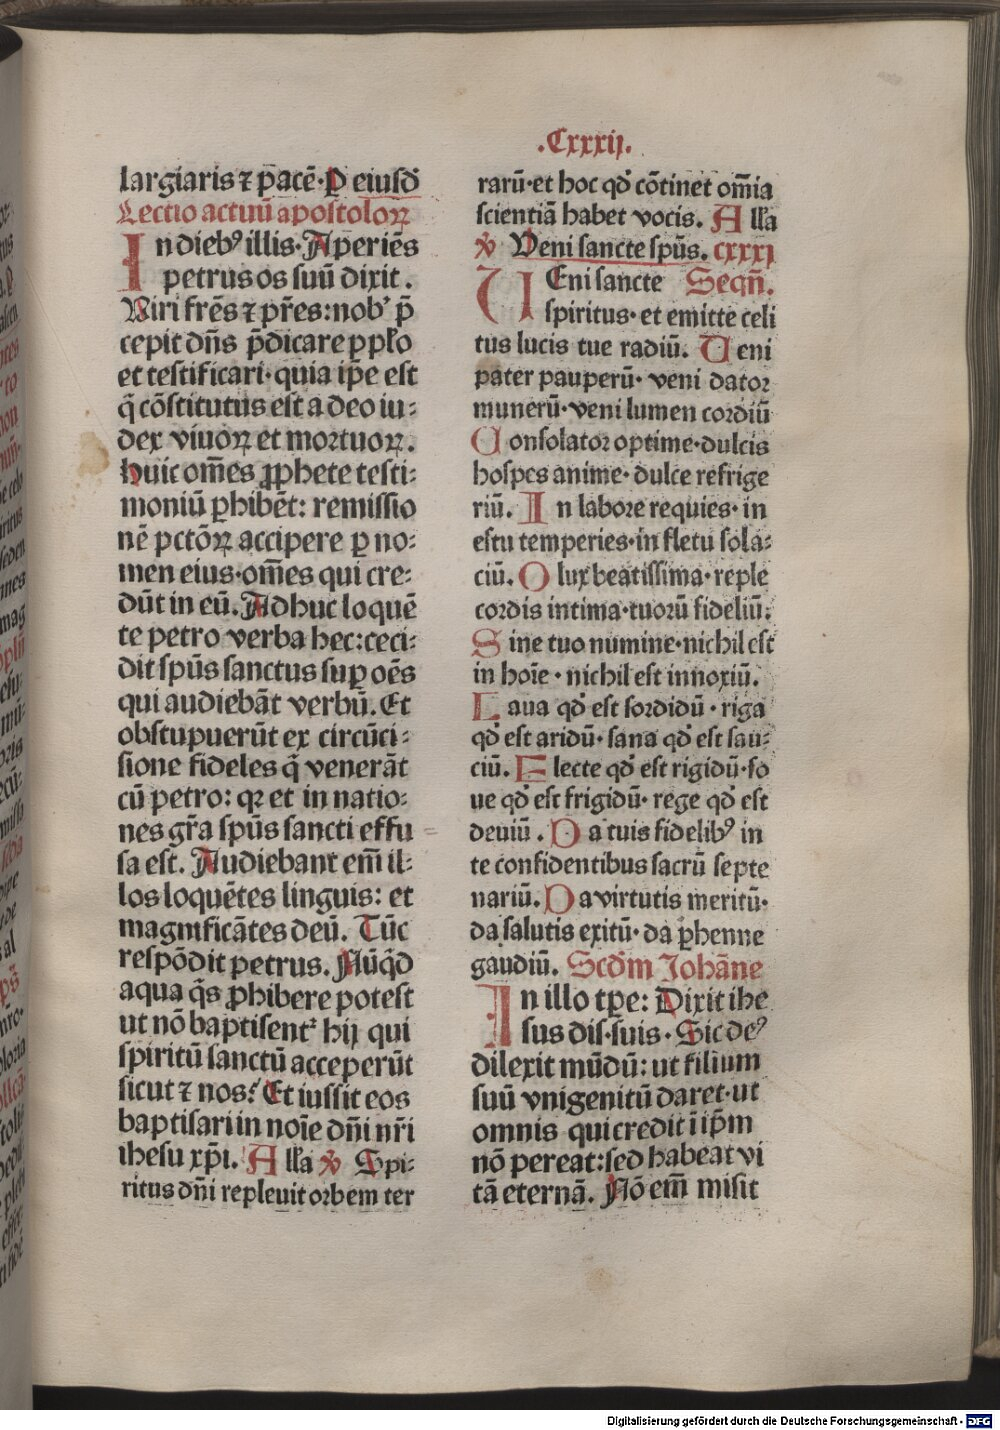 .Cxxxij.
largiaris ⁊ pacē·P̲ eiusd̄
Lectio actuū apostoloꝝ
In diebꝰ illis·Aperiēs
petrus os suū dixit.
Viri frēs ⁊ pr̄es:nobꝭ p̄
cepit dn̄s p̄dicare pplo
et testificari·quia ip̄e est
q̄ cōstitutus est a deo iu⸗
dex viuoꝝ et mortuoꝝ.
huic om̄es ꝓphete testi⸗
moniū ꝑhibēt: remissio
nē pctōꝝ accipere ꝑ no⸗
men eius·om̄es qui cre⸗
dūt in eū. Adhuc loquē
te petro verba hec:ceci⸗
dit spūs sanctus suꝑ oēs
qui audiebāt verbū. Et
obstupuerūt ex circūci⸗
sione fideles q̄ venerāt
cū petro: qꝛ et in natio⸗
nes gr̄a spūs sancti effu
sa est. Audiebant em̄ il⸗
los loquētes linguis: et
magnificātes deū. Tūc
respōdit petrus. Nūq̄d
aqua q̄s ꝓhibere potest
ut nō baptisentᷣ hij qui
spiritū sanctū acceperūt
sicut ⁊ nos? Et iussit eos
baptisari in noīe dn̄i nr̄i
ihesu xp̄i. Alla ℣ Spi⸗
ritus dn̄i repleuit orbem ter
rarū·et hoc qd̄ cōtinet om̄ia
scientiā habet vocis. Alla
℣ Veni sancte spūs. cxxxj
VEni sancte Seqn̄.
spiritus·et emitte celi
tus lucis tue radiū. Veni
pater pauperū· veni datoꝛ
munerū·veni lumen cordiū
Consolator optime·dulcis
hospes anime· dulce refrige
riū. In labore requies· in
estu temperies·in fletu sola⸗
ciū. O lux beatissima·reple
cordis intima·tuorū fideliū.
Sine tuo numine·nichil est
in hoīe·nichil est innoxiū.
Laua qd̄ est sordidū·riga
qd̄ est aridū·sana qd̄ est sau⸗
ciū. Flecte qd̄ est rigidū·fo
ue qd̄ est frigidū· rege qd̄ est
deuiū. Da tuis fidelibꝰ in
te confidentibus sacrū septe
nariū. Da virtutis meritū·
da salutis exitū·da ꝑhenne
gaudiū. Scd̄m Johāne
In illo tp̄e: Dixit ihe
sus dis·suis·Sic deꝰ
dilexit mūdū: ut filium
suū vnigenitū daret·ut
omnis qui credit ī ip̄m
nō pereat:sed habeat vi
tā eternā. Nō em̄ misit
Digitalisierung gefördert durch die Deutsche Forschungsgemeinschaft - DFG